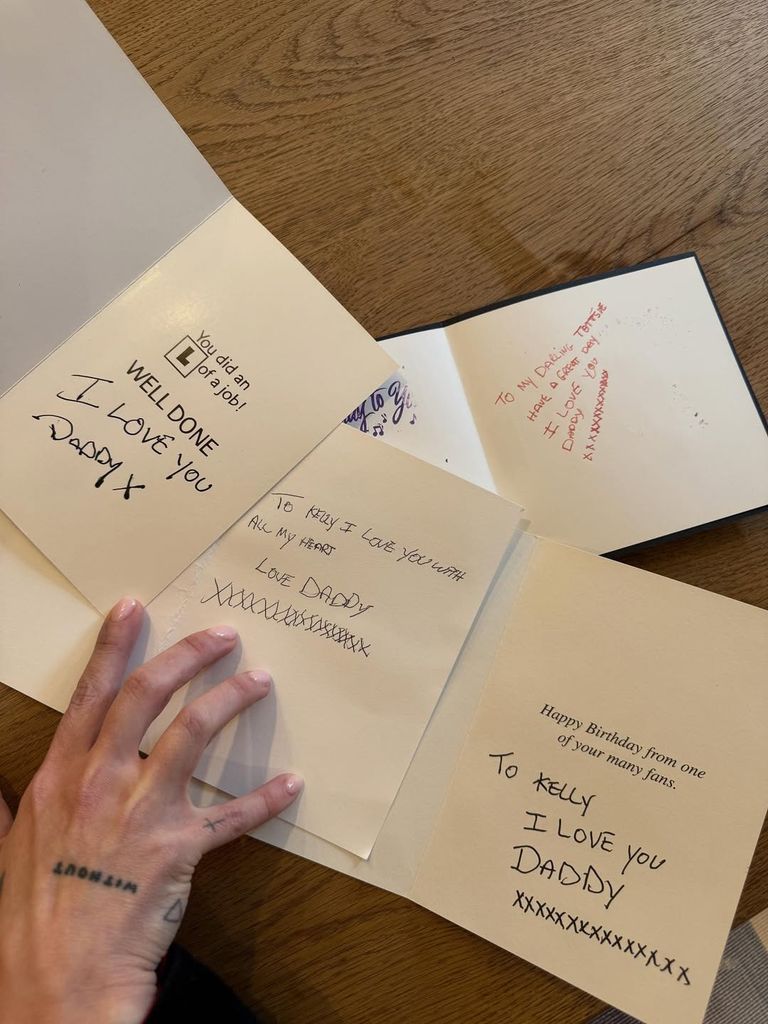 You did an
L of a job!
WELL DONE
I LOVE YOU
DADDY X
to Yo
TO MY DARLING
HAVE A GREAT DAY...
I LOVE YOU
DADDY
XXXXXXXXXXXX
TO KELLY I LOVE YOU WITH
ALL MY HEART
LOVE DADDY
XXXXXXXXXXXXXXXX
Happy Birthday from one
of your many fans.
TO KELLY
I LOVE YOU
DADDY
XXXXXXXXXXXXXXXX
WITHOUT